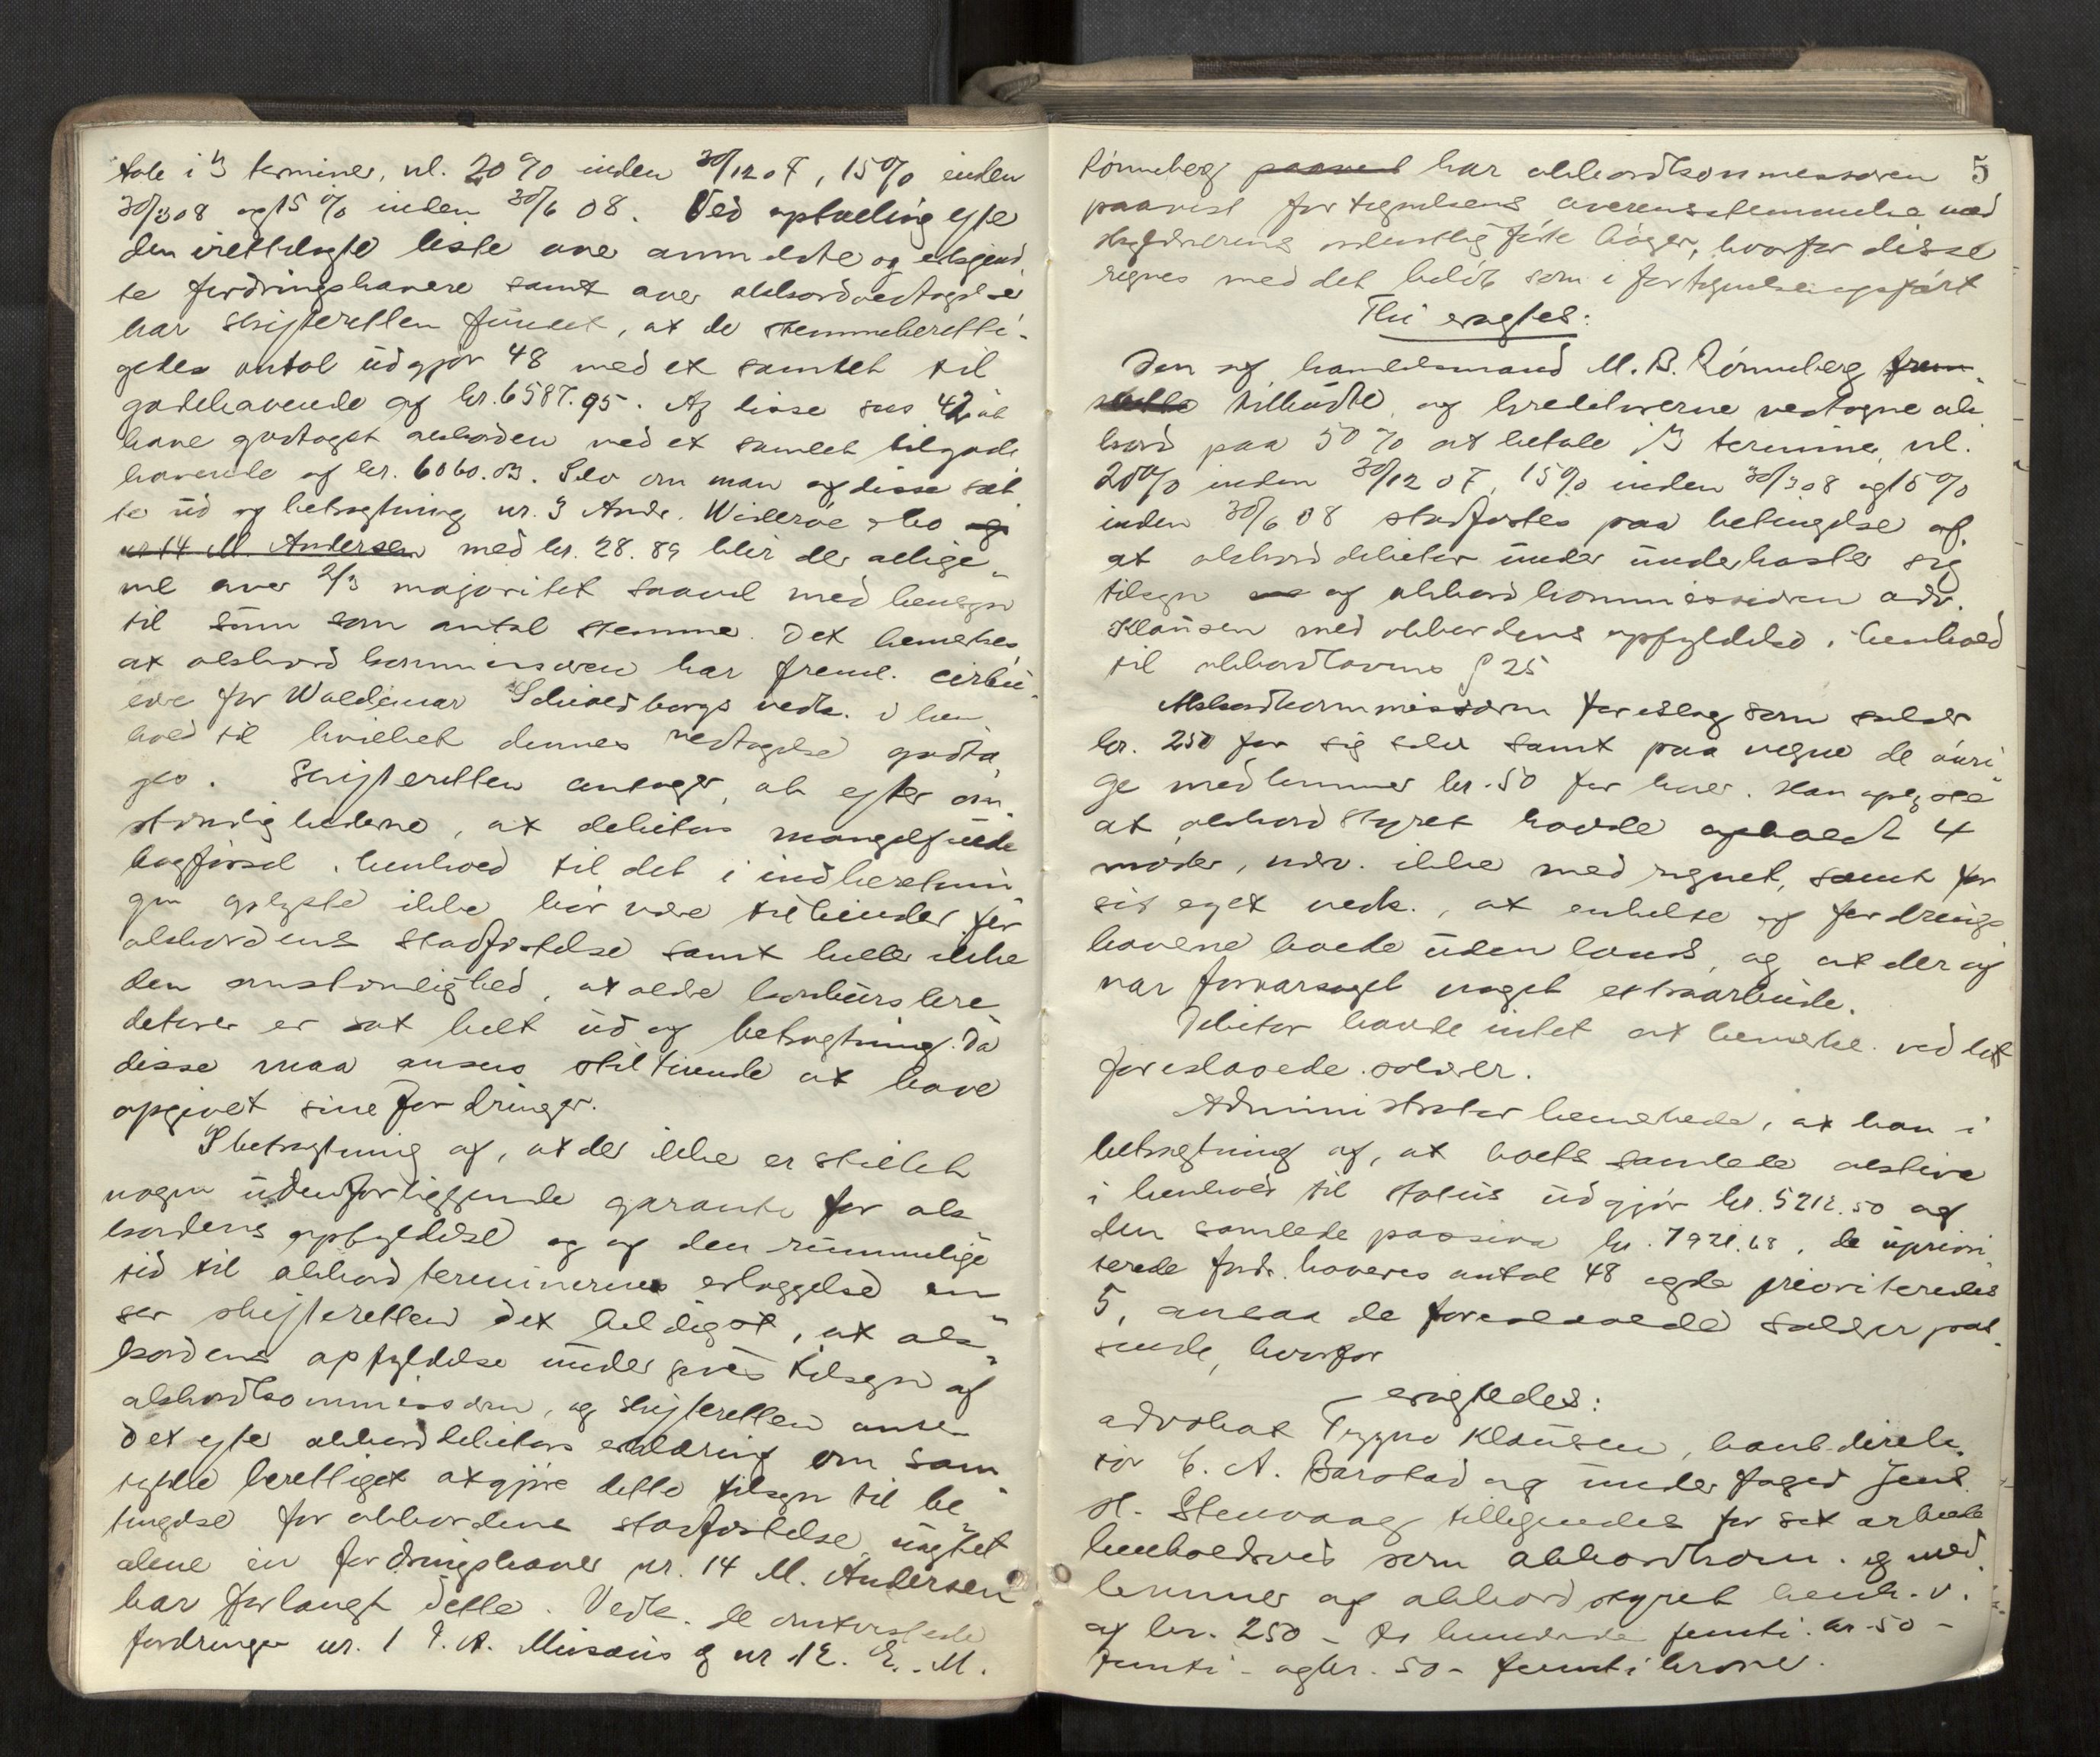 tale i 3 terminer, nl. 20 % inden 30/12 07, 15 % inden
30/3 08 og 15 % inden 30/6 08. Ved optælling efte
den irettelagte liste over anmeldte og erkjend
te fordringshavere samt over akkordvedtagelser
har skifteretten fundet, at de stemmeberetti-
gedes antal udgjør 48 med et samlet til
godehavende af kr. 6587.95. Af disse sees 42 at
have godtaget akkorden med et samlet tilgode
havende af kr. 6060.03. Selv om man af disse sæt
ter ud og betragtning nr. 3 Andr. Widerøe & Co og
nr 14 M. Andersen med kr. 28.89 blir der allige-
vel over 2/3 majoritet saavel med hensyn
til sum som antal stemme. Det bemerkes,
at akkordkommissæren har freml. cirku-
lære for Waldemar Schieldborgs vedk. i hen
hold til hvilket dennes vedtagelse godta
ges. Skifteretten antager, at efter om-
stændighederne, at debitors mangelfulde
bogførsel i henhold til det i indberetnin
gen oplyste ikke bør være til hinder for
akkordens stadfæstelse samt heller ikke
den omstændighed, at ældre konkurskre-
ditorer er sat helt ud af betragtning. da
disse maa ansees stiltiende at have
opgivet sine fordringer.
I betragtning af, at der ikke er stillet
nogen udenforliggende garanti for ak
kordens opfyldelse og af den rummelige
tid til akkordterminernes erlæggelse an-
ser skifteretten det heldigst, at ak-
kordens opfyldelse undergives tilsyn af
akkordkommissæren, og skifteretten anser
det efter akkorddebitors erklæring om sam-
tykke berettiget at gjøre dette tilsyn til be-
tingelse for akkordens stadfæstelse uagtet
alene én fordringshaver nr. 14 M. Andersen
har forlangt dette. Vedk. de omtvistede
fordringer nr. 1 I. A. Musæus & nr 12. E. M.
5
Rønneberg paavist har akkordkommissæren
paavist fortegnelsens overensstemmelse med
skyldnerens ordentlig førte bøger, hvorfor disse
regnes med det beløb som i fortegnelsen opført
Thi eragtes:
Den af handelsmand M. B. Rønneberg frem-
satte tilbudte og kreditorerne vedtagne ak
kord paa 50 % at betale i 3 terminer, nl.
20 % inden 30/12 07, 15 % inden 30/3 08 og 15 %
inden 30/6 08 stadfæstes paa betingelse af,
at akkorddebitor under underkaster sig
tilsyn af akkordkommissæren adv.
Klausen med akkordens opfyldelse i henhold
til akkordlovens § 25
Akkordkommissæren foreslog som salær
kr. 250 for sig selv samt paa vegne de øvri-
ge medlemmer kr. 50 for hver. Han oplyste
at akkordstyret havde afholdt 4
møder, nærv. ikke medregnet, samt for
sit eget vedk., at enkelte af fordrings
haverne boede udenlands, og at der af
var forvarsaget noget extraarbeide.
Debitor havde intet at bemerke ved det
foreslaaede salærer.
Administrator bemerkede, at han i
betragtning af, at boets samlede aktiva
i henhold til status udgjør kr. 5212.50 og
den samlede passiva kr. 7921.68, de upriori
terede fordr. haveres antal 48 og de prioriteredes
5, ansaa de foreslaaede salærer pas-
sende, hvorfor
eragtedes:
advokat Trygve Klausen, bankdirek-
tør C. A. Barstad og underfoged Jens
H. Stenvaag tillegnedes for sit arbeide
henholdsvis som akkordkom. og med-
lemmer af akkordstyret henh. v.
af kr. 250 – to hundrede femti. kr. 50 –
femti – og kr. 50 – femti kroner.